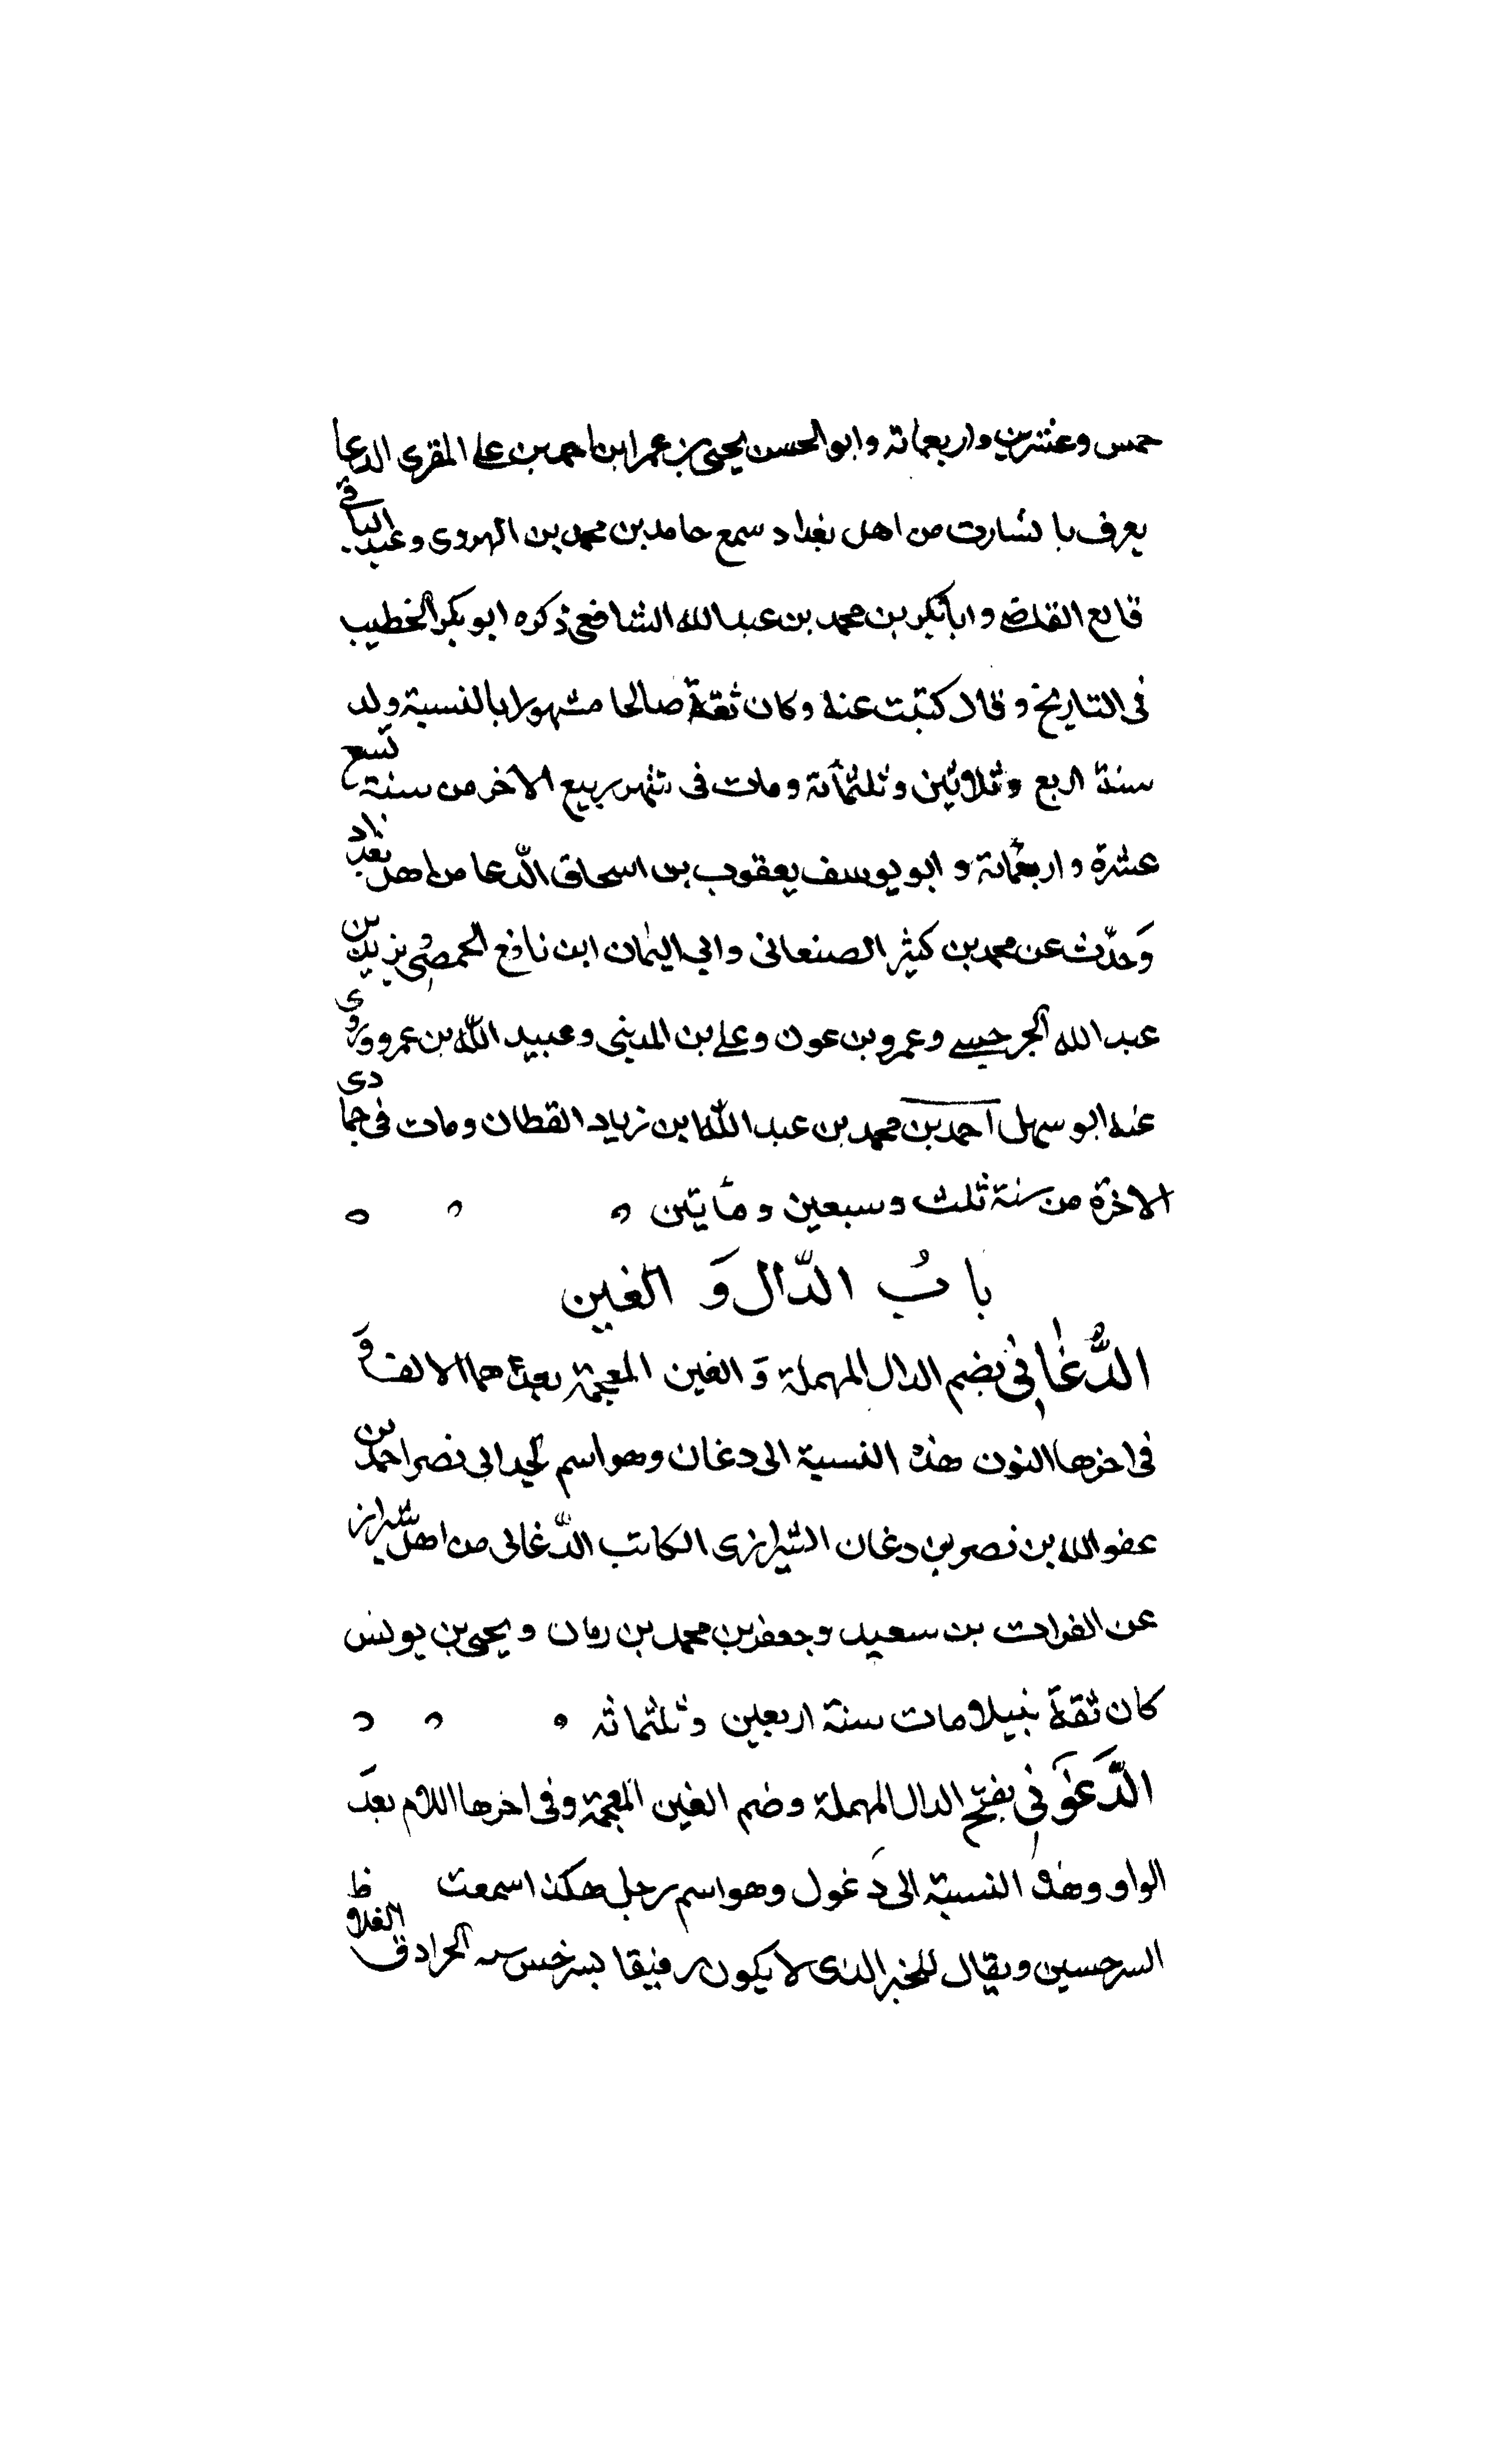 خمس وعشرين واربعمائة وابو الحسن يحيى بن عمر ابن احمد بن على المقرى الدعا
يعرف با لشارت من اهل بغداد سمع حامد بن محمد بن الهروى وعبد الباقى
قانع القاضى و ابا بكر بن محمد بن عبد الله الشافعى ذكره ابو بكر الخطيب
فى التاريخ و قال كتبت عنه وكان ثقة صالحا مشهورا بالنسبة ولد
سنة اربع وثلاثين و ثلثمائة و مات فى شهر ربيع الآخر من سنة تسع
عشرة و اربعمائة و ابو يوسف يعقوب بن اسحاق الدّعا من اهل بغداد
وَحدّث عن محمد بن كثير الصنعانى وابى اليمان ابن نافع الحمصى ويزيد بن
عبد الله الجرجسى وعمرو بن عون وعلى بن المدينى وعبيد اللّه بن عمرو وروى
عنه ابو سهل احمد بن محمد بن عبد اللّه ابن زياد القطان ومات فى جمادى
الاخرة من سنة ثلث وسبعين ومأيتين
بابُ الدّال وَ الغين
الدُّغانِى بضم الدال المهملة وَ الغين المعجمة بعدهما الالف وَ
فى اخرها النون هذه النسبة الى دغان وهو اسم لجد ابى نصر احمد بن
عفو الله بن نصر بن دغان الشيرازى الكاتب الدّغانى من اهل شيراز
عن الفرات بن سعيد وجعفر بن محمد بن رمان ويحيى بن يونس
كان ثقة نبيلا مات سنة اربعين وثلثمائه
الدَّغوَنِى بفتح الدال المهملة وضم الغين المعجمة وفى اخرها اللام بعدَ
الواو وهذه النسبة الى دَغول وهو اسم رجل هكذا سمعت
السرحسين ويقال للخبز الذى لا يكون رقيقا بسرخس الجرادق الغلاظ